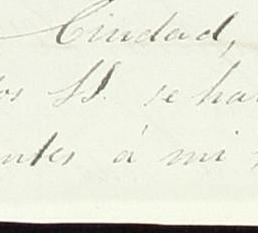 Ciudad,
os SS. se ha
ntes á mi